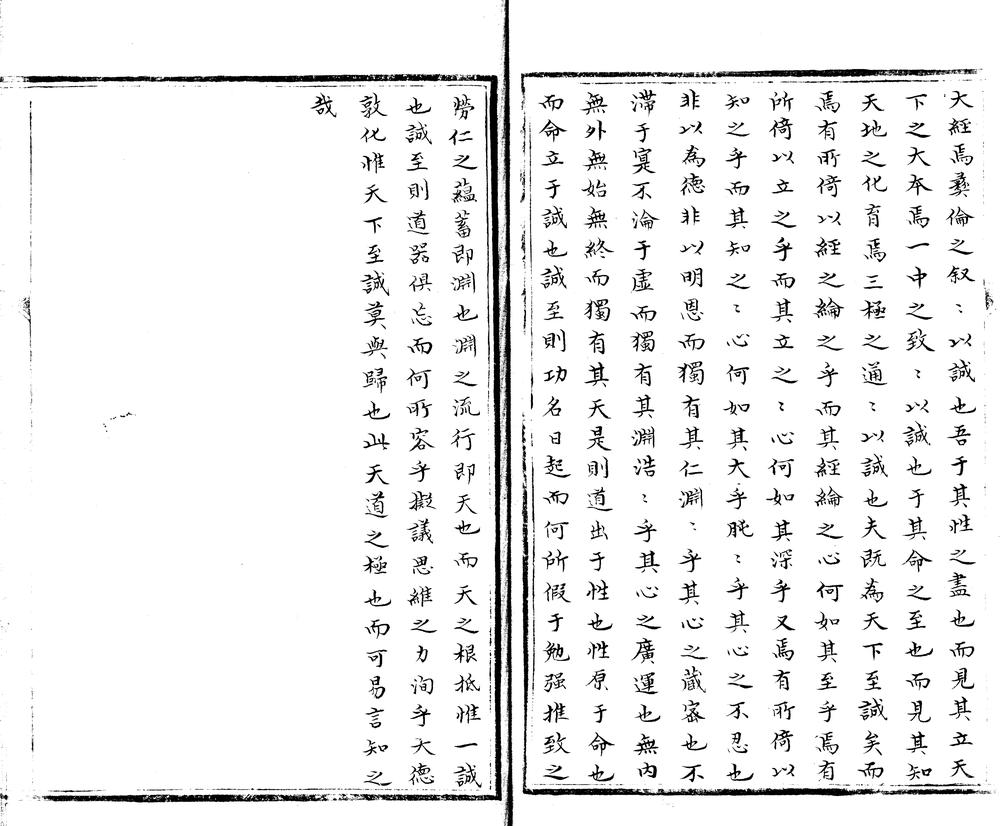 大經焉彝倫之叙〻以誠也吾于其性之盡也而見其立天
下之大本焉一中之致〻以誠也于其命之至也而見其知
天地之化育焉三極之通〻以誠也夫既為天下至誠矣而
焉有所倚以經之綸之乎而其經綸之心何如其至乎焉有
所倚以立之乎而其立之〻心何如其深乎又焉有所倚以
知之乎而其知之〻心何如其大乎肫〻乎其心之不忍也
非以為德非以明恩而獨有其仁淵〻乎其心之藏密也不
滯于寔不淪于虛而獨有其淵浩〻乎其心之廣運也無內
無外無始無終而獨有其天是則道出于性也性原于命也
而命立于誠也誠至則功名日起而何所假于勉强推致之
勞仁之蘊蓄即淵也淵之流行即天也而天之根抵惟一誠
也誠至則道器俱忘而何所容乎擬議思維之力洵乎大德
敦化惟天下至誠莫與歸也此天道之極也而可易言知之
哉